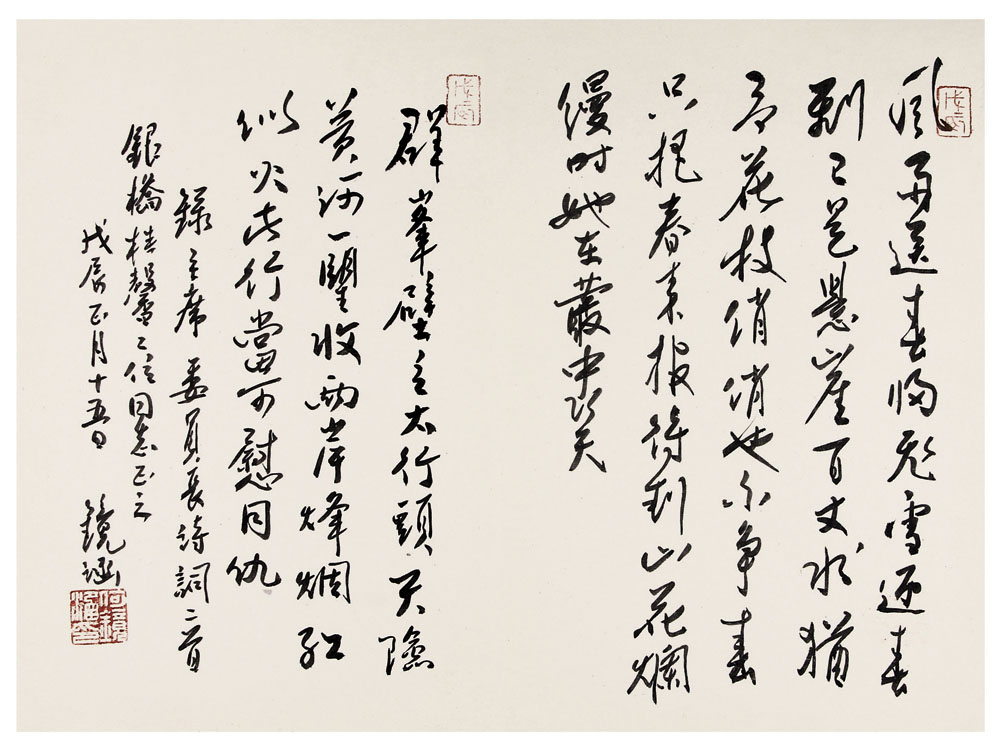 風雨送春歸飛雪迎春
到已是懸崖百丈冰猶
有花枝俏俏也不爭春
只把春來報待到山花爛
縵時她在叢中笑
群峯壁立太行頭天險
黄河一望收兩岸烽烟紅
似火此行當可慰同仇
錄主席 委員長詩詞二首
銀橋桂馨二位同志正之
戊辰正月十五日
鏡涵
戊辰
戊辰